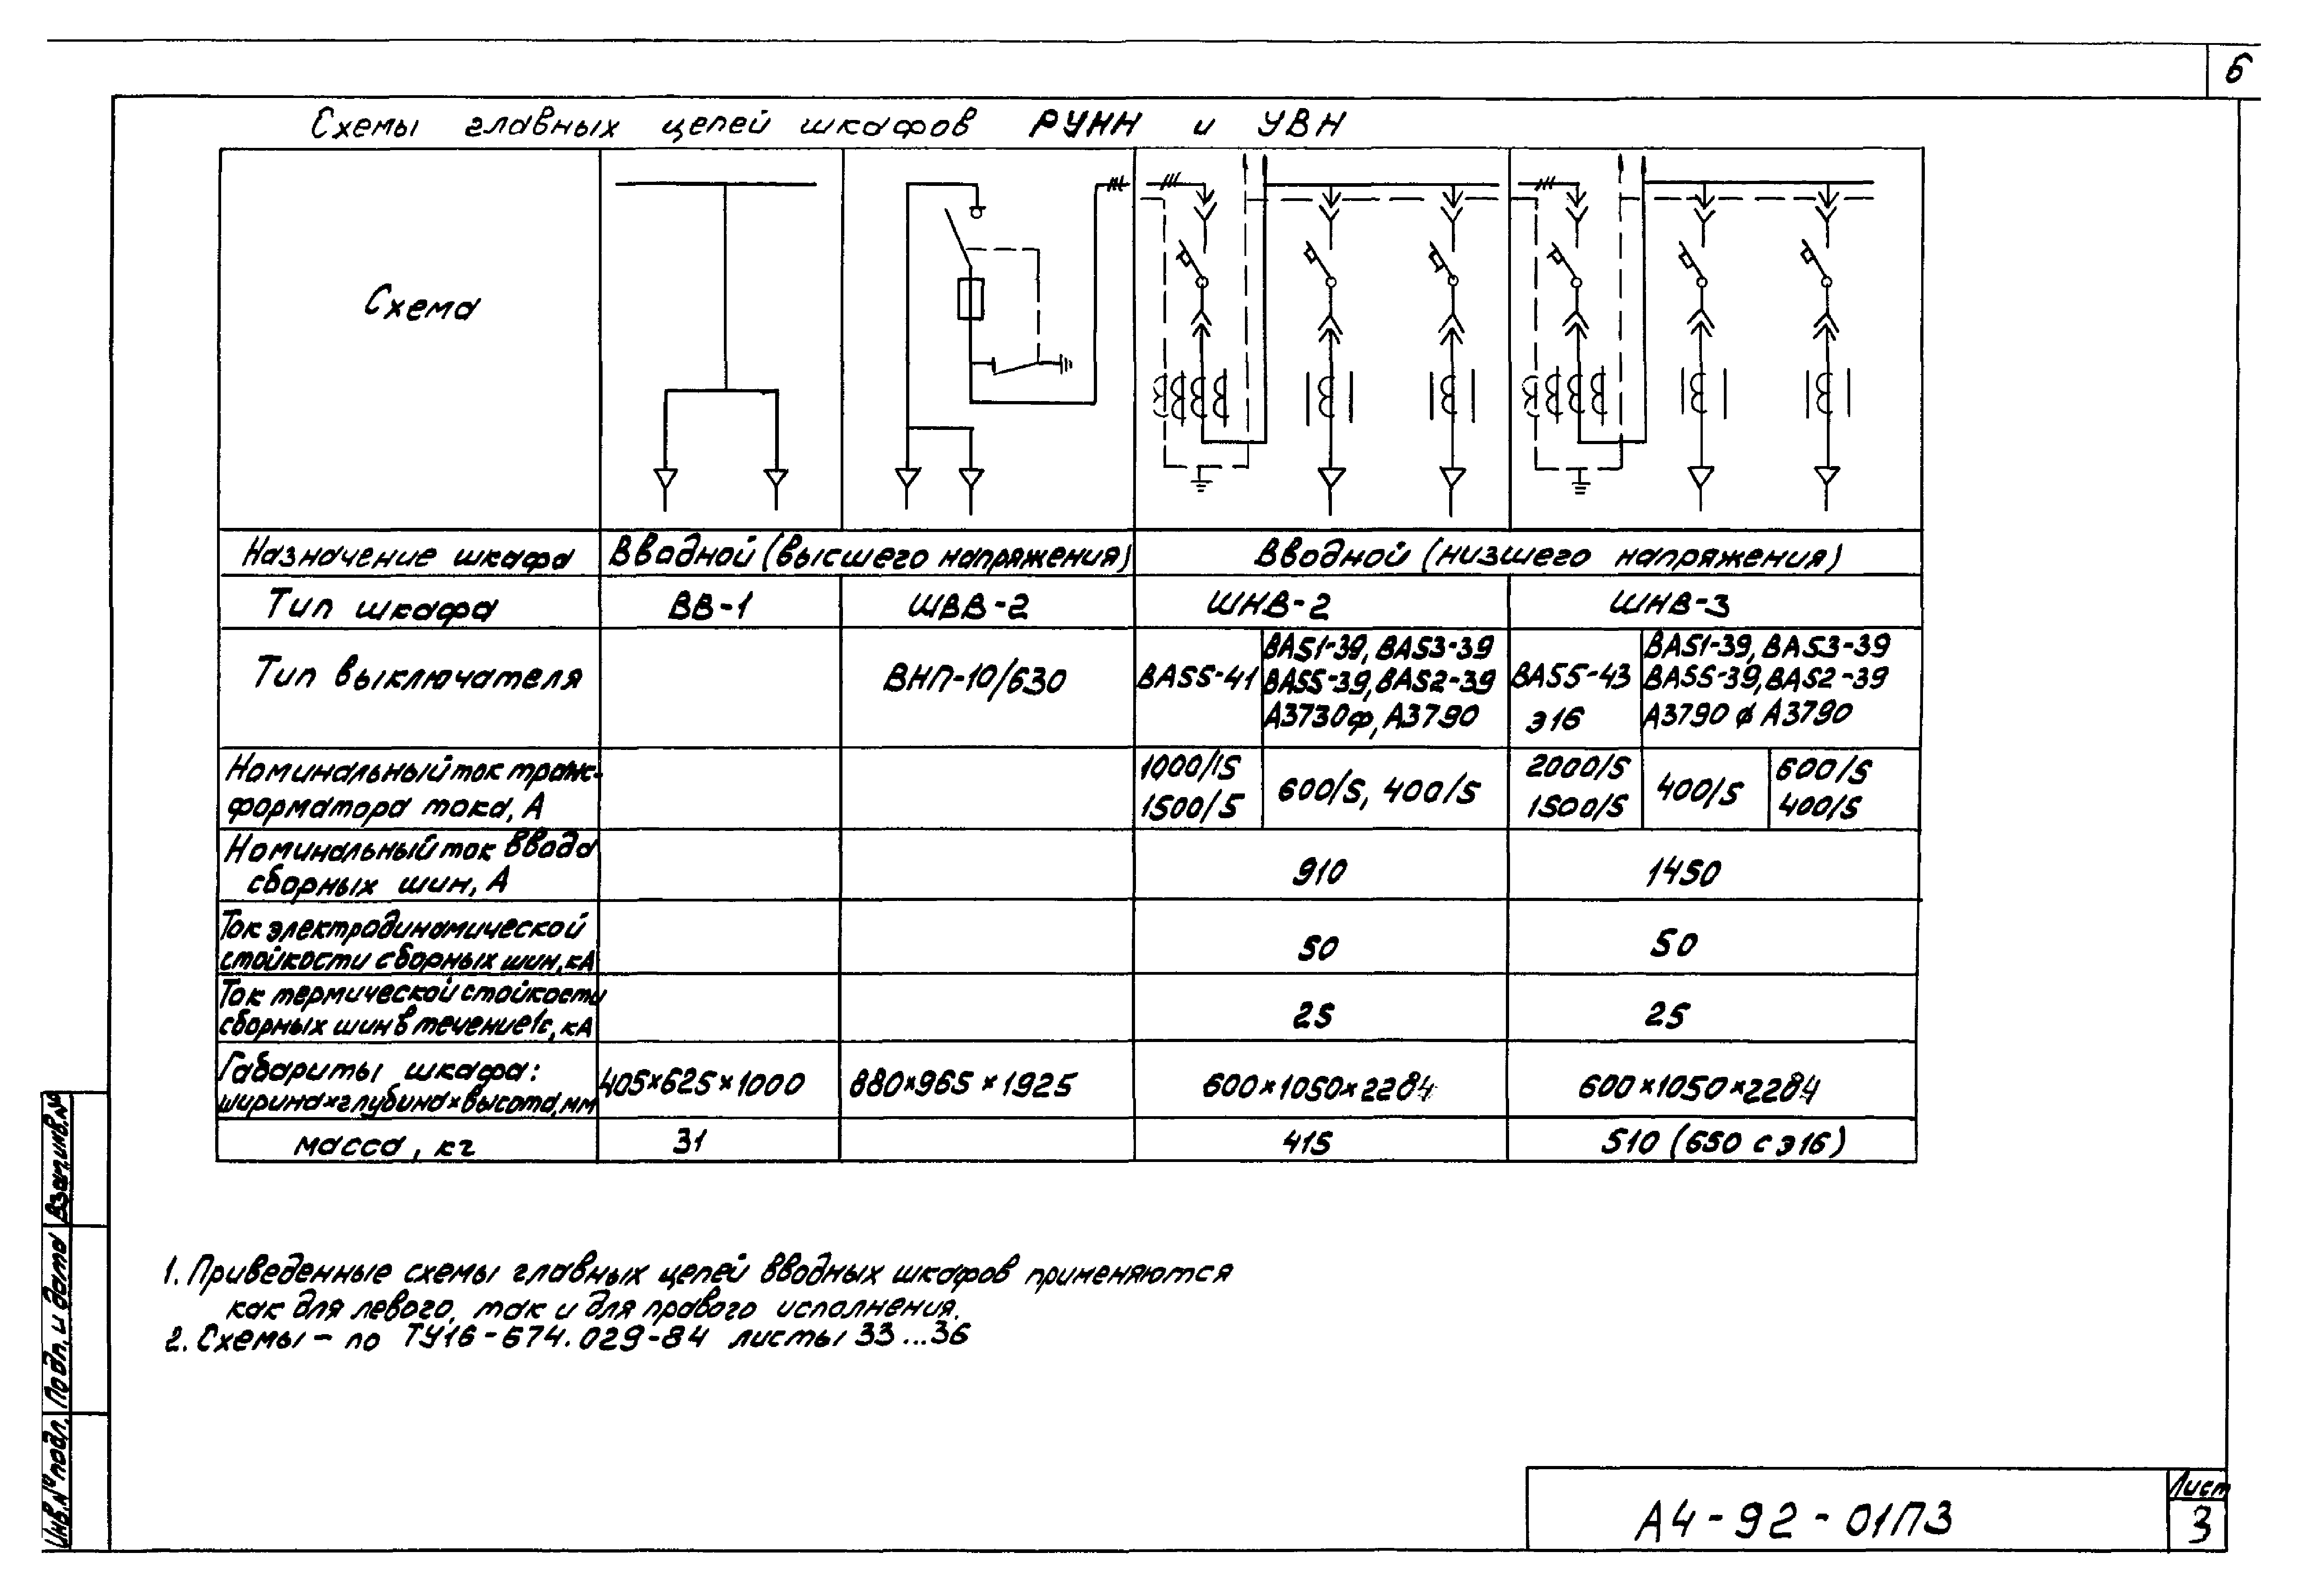 6
Схемы главных цепей шкафов РУНН и УВН
Схема
Назначение шкафа
Вводной (высшего напряжения)
Вводной (низшего напряжения)
Тип шкафа
ВВ-1
ШВВ-2
ШНВ-2
ШНВ-3
Тип выключателя
ВНП-10/630
ВА55-41
ВА51-39, ВА53-39
ВА55-39, ВА52-39
А3730ф, А3790
ВА55-43
Э16
ВА51-39, ВА53-39
ВА55-39, ВА52-39
А3790 ф А3790
Номинальный ток транс-
форматора тока, А
1000/15
1500/5
600/5, 400/5
2000/5
1500/5
400/5
600/5
400/5
Номинальный ток ввода
сборных шин, А
910
1450
Ток электродинамической
стойкости сборных шин, кА
50
50
Ток термической стойкости
сборных шин в течение 1с, кА
25
25
Габариты шкафа:
ширина×глубина×высота, мм
405×625×1000
880×965×1925
600×1050×2284
600×1050×2284
масса, кг
31
415
510 (650 с Э16)
1. Приведенные схемы главных цепей вводных шкафов применяются
как для левого, так и для правого исполнения.
2. Схемы - по ТУ16-674.029-84 листы 33...36
Взам.инв.№
Подп. и дата
Инв.№ подл.
А4-92-01ПЗ
Лист
3